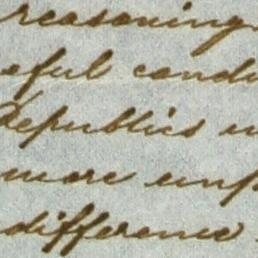 reasoning
eful condu
Republics
more unp
difference.